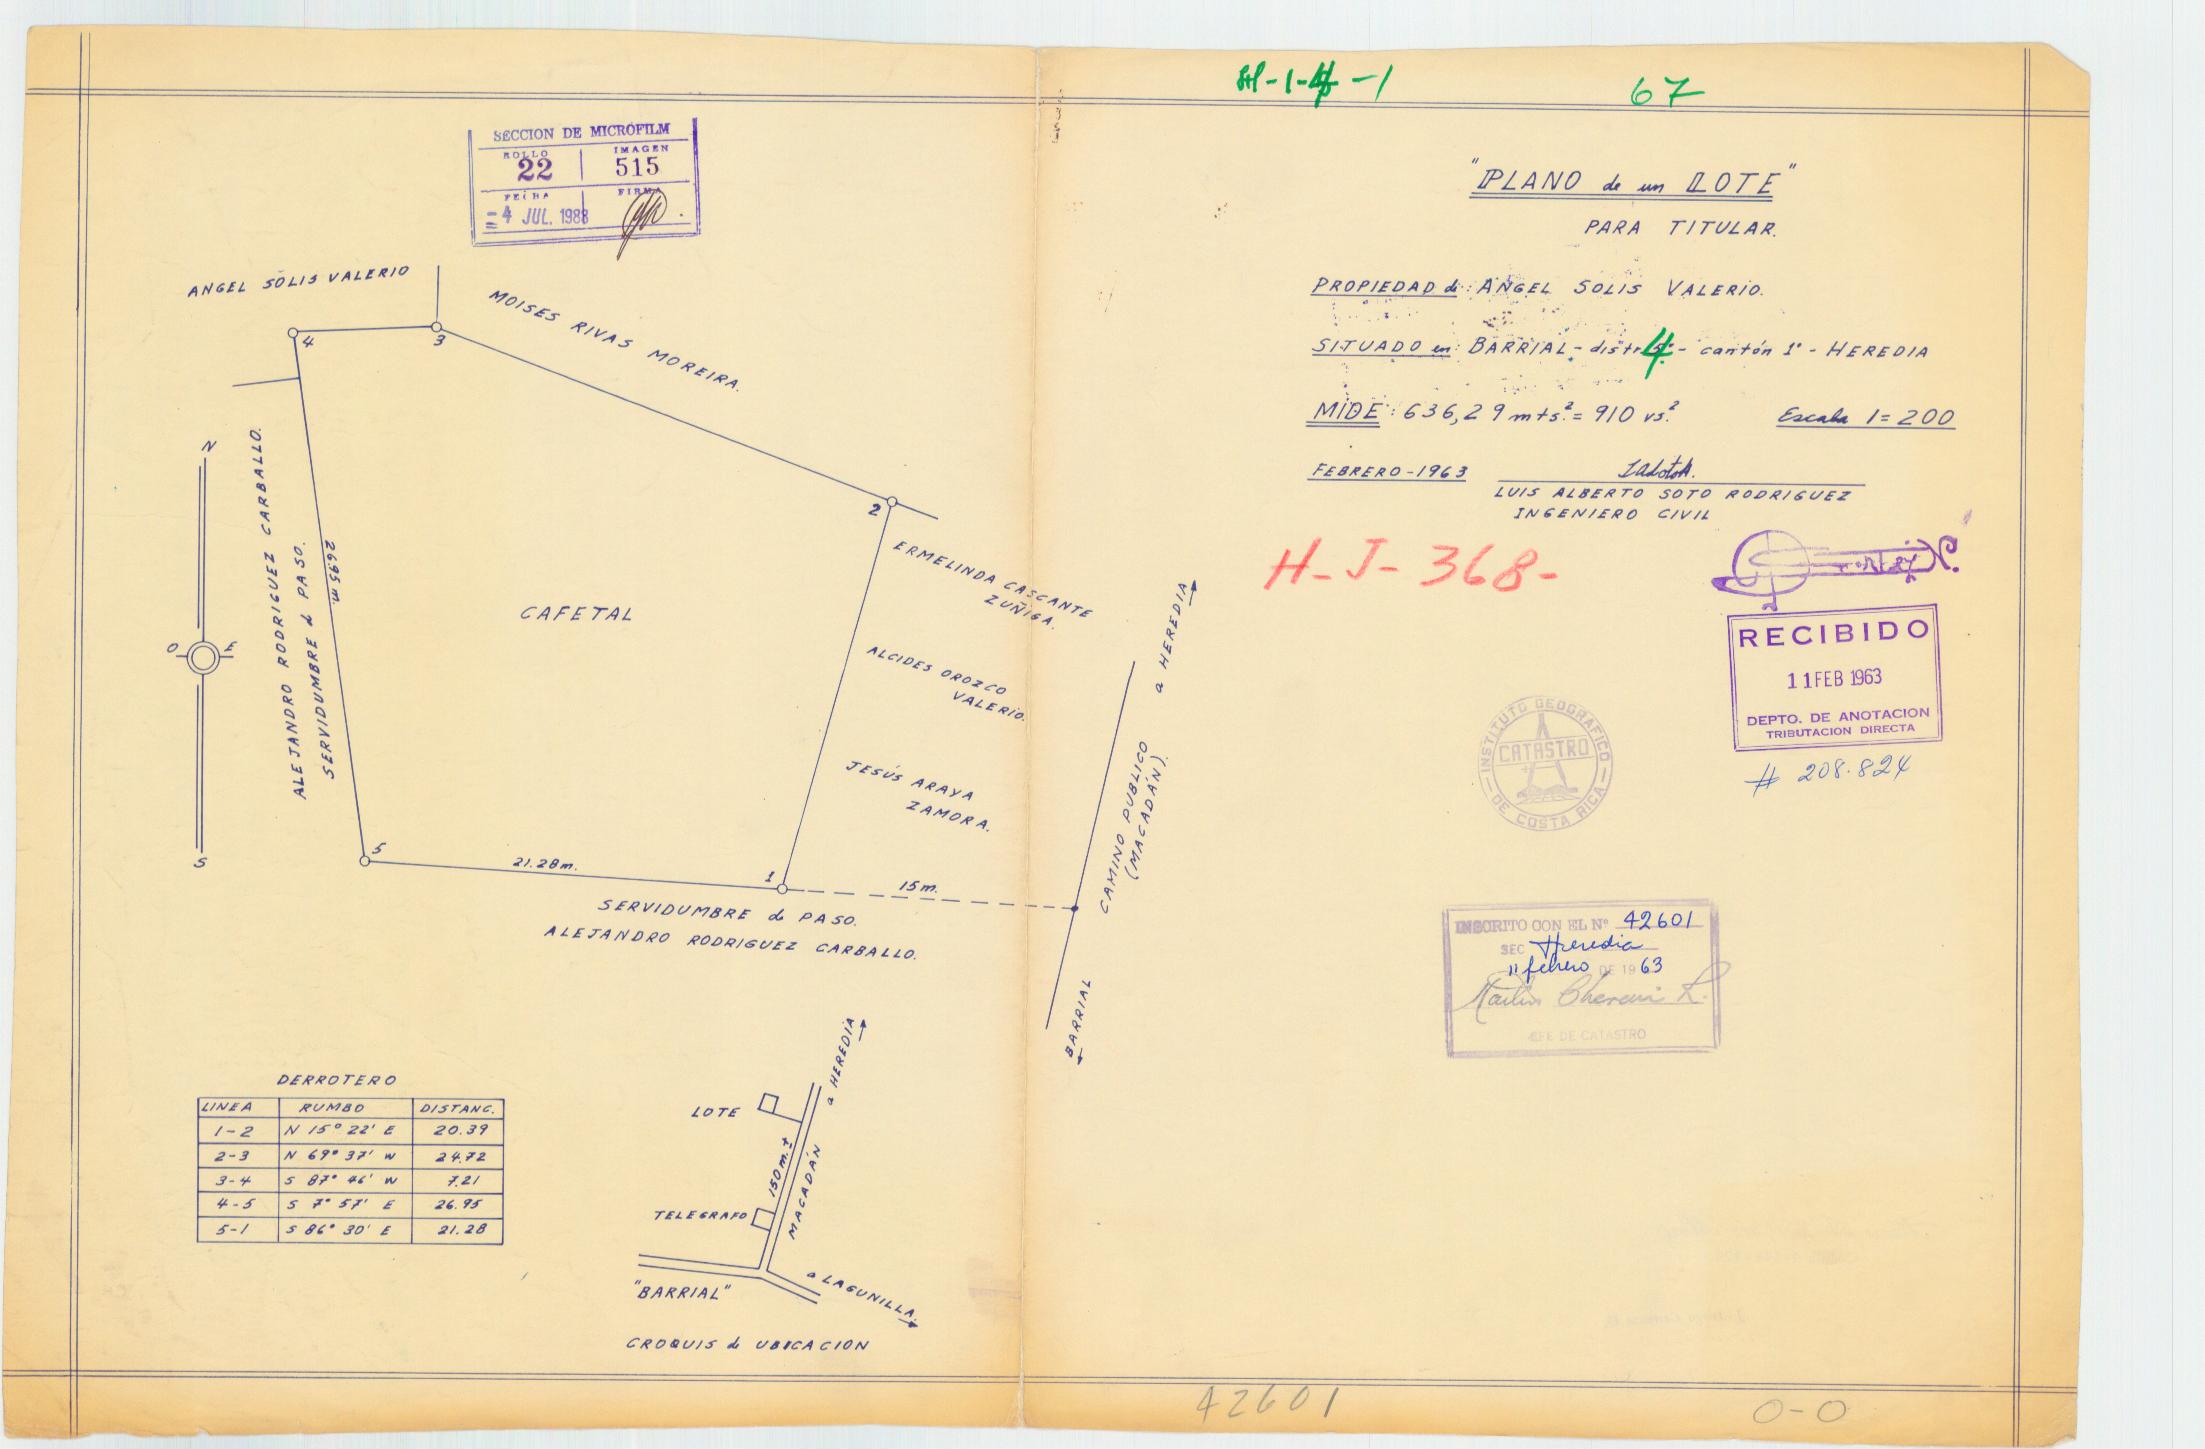 H-1-4-1
67
SECCION DE MICROFILM
ROLLO IMAGEN
22 515
FECHA FIRMA
4 JUL. 1988
"PLANO de un LOTE"
PARA TITULAR.
PROPIEDAD de: ANGEL SOLIS VALERIO.
SITUADO en: BARRIAL - distr 4 - cantón 1º - HEREDIA
MIDE: 636,29 mts.² = 910 vs.² Escala 1=200
FEBRERO-1963
LUIS ALBERTO SOTO RODRIGUEZ
INGENIERO CIVIL
H-J-368-
RECIBIDO
11 FEB 1963
DEPTO. DE ANOTACION
TRIBUTACION DIRECTA
# 208.824
INSTITUTO GEOGRAFICO
CATASTRO
DE COSTA RICA
INSCRITO CON EL Nº 42601
SEC Heredia
11 febrero DE 1963
JEFE DE CATASTRO
ANGEL SOLIS VALERIO
MOISES RIVAS MOREIRA.
4
3
2
ALEJANDRO RODRIGUEZ CARBALLO.
SERVIDUMBRE de PASO.
26.95 m.
N
O
E
S
CAFETAL
ERMELINDA CASCANTE
ZUÑIGA.
ALCIDES OROZCO
VALERIO.
JESÚS ARAYA
ZAMORA.
5
21.28 m.
1
15 m.
SERVIDUMBRE de PASO.
ALEJANDRO RODRIGUEZ CARBALLO.
a HEREDIA
CAMINO PUBLICO
(MACADÁN).
BARRIAL
DERROTERO
LINEA RUMBO DISTANC.
1-2 N 15° 22' E 20.39
2-3 N 69° 37' W 24.72
3-4 S 87° 46' W 7.21
4-5 S 7° 57' E 26.95
5-1 S 86° 30' E 21.28
a HEREDIA
LOTE
150 m. ±
MACADÁN
TELEGRAFO
"BARRIAL"
a LAGUNILLA.
CROQUIS de UBICACION
42601
0-0